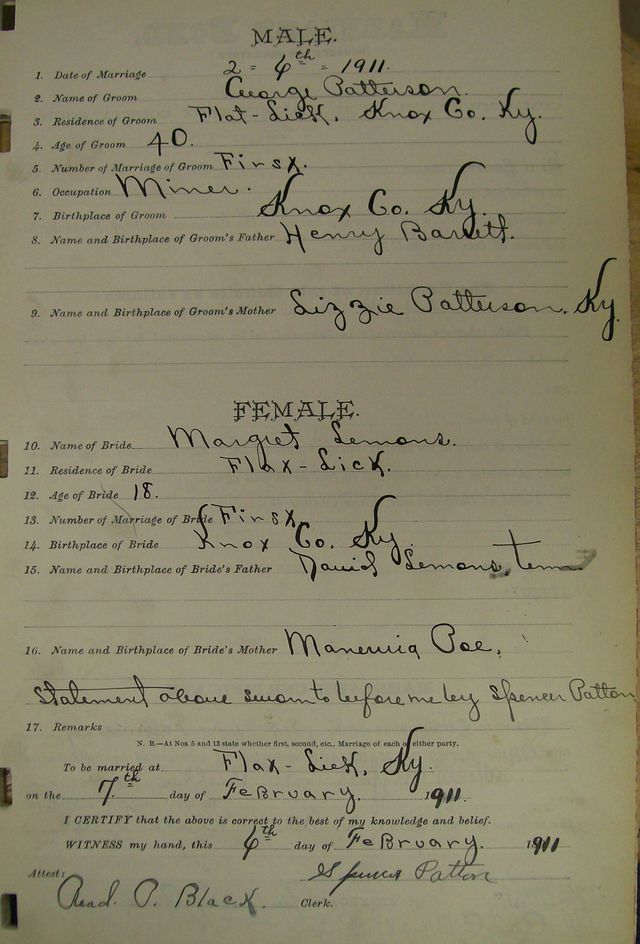 MALE.
1. Date of Marriage 2 = 6th = 1911.
2. Name of Groom George Patterson.
3. Residence of Groom Flat-Lick, Knox Co. Ky.
4. Age of Groom 40.
5. Number of Marriage of Groom First.
6. Occupation Miner.
7. Birthplace of Groom Knox Co. Ky.
8. Name and Birthplace of Groom's Father Henry Barrett.
9. Name and Birthplace of Groom's Mother Lizzie Patterson, Ky.
FEMALE.
10. Name of Bride Margret Lemons.
11. Residence of Bride Flat-Lick.
12. Age of Bride 18.
13. Number of Marriage of Bride First
14. Birthplace of Bride Knox Co. Ky.
15. Name and Birthplace of Bride's Father David Lemons, Tenn
16. Name and Birthplace of Bride's Mother Poe.
Statement above sworn to before me by Spencer Patton
17. Remarks
N. B.—At Nos. 5 and 13 state whether first, second, etc., Marriage of each of either party.
To be married at Flat-Lick, Ky.
on the 7th day of February. 1911.
I CERTIFY that the above is correct to the best of my knowledge and belief.
WITNESS my hand, this 6th day of February. 1911
Attest: Spencer Patton
Read P. Black. Clerk.